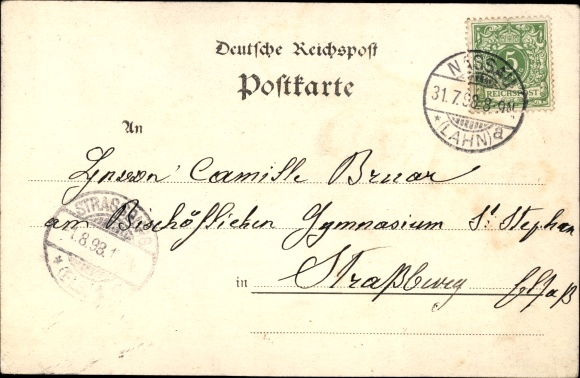 Deutsche Reichspost
Postkarte
5
REICHSPOST
NASSAU
31.7.98. 8-9N.
* (LAHN) a
An
Camille Bruar
am Bischöflichen Gymnasium St. Stephan
in Straßburg Elsaß
STRASSBURG
.8.98.1